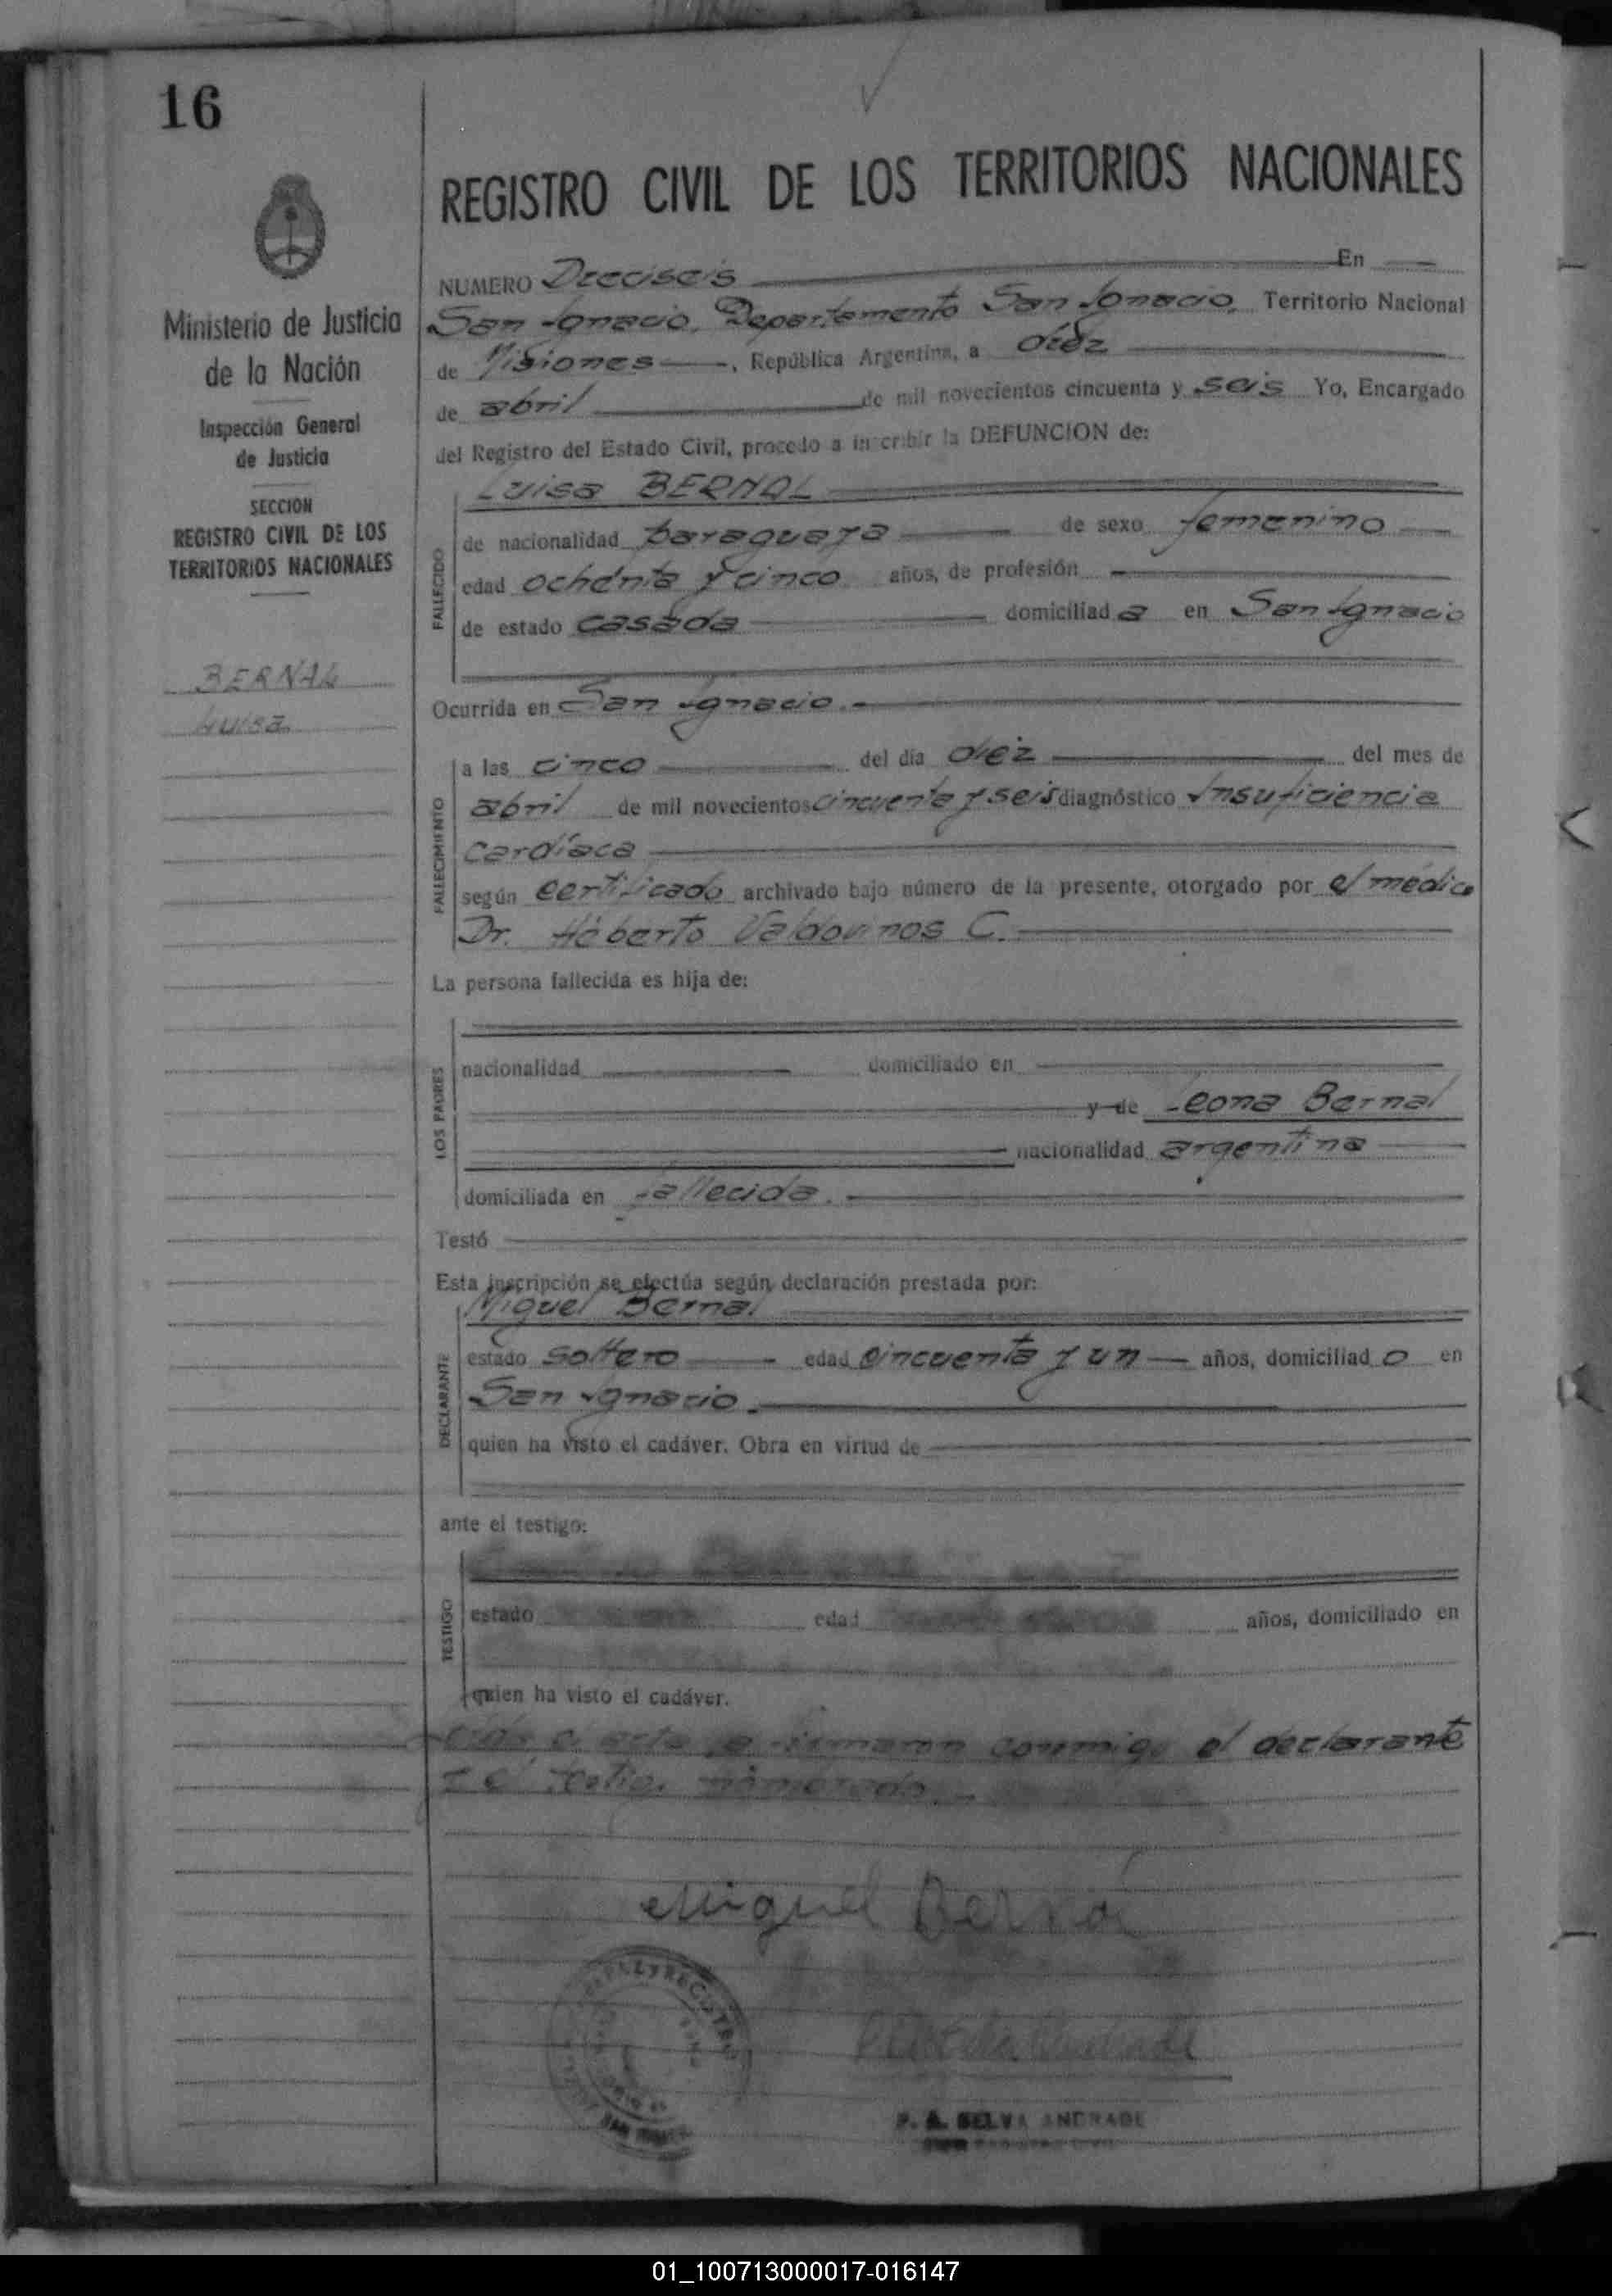 16
REGISTRO CIVIL DE LOS TERRITORIOS NACIONALES
Ministerio de Justicia
de la Nación
Inspección General
de Justicia
SECCION
REGISTRO CIVIL DE LOS
TERRITORIOS NACIONALES
BERNAL
Luisa
NUMERO Dieciseis En
San Ignacio, Departamento San Ignacio, Territorio Nacional
de Misiones, República Argentina, a diez
de abril de mil novecientos cincuenta y seis Yo, Encargado
del Registro del Estado Civil, procedo a inscribir la DEFUNCION de:
Luisa BERNAL
FALLECIDO
de nacionalidad paraguaya de sexo femenino
edad ochenta y cinco años, de profesión
de estado casada domiciliada en San Ignacio
Ocurrida en San Ignacio.
FALLECIMIENTO
a las cinco del día diez del mes de
abril de mil novecientos cincuenta y seis diagnóstico Insuficiencia
cardíaca
según certificado archivado bajo número de la presente, otorgado por el médico
Dr. Heberto Valdovinos C.
La persona fallecida es hija de:
LOS PADRES
nacionalidad domiciliado en
y de Leona Bernal
nacionalidad argentina
domiciliada en fallecida.
Testó
Esta inscripción se efectúa según declaración prestada por:
Miguel Bernal
DECLARANTE
estado soltero edad cincuenta y un años, domiciliado en
San Ignacio.
quien ha visto el cadáver. Obra en virtud de
ante el testigo:
TESTIGO
estado edad años, domiciliado en
quien ha visto el cadáver.
el acta la firmaron conmigo el declarante
y el testigo nombrado.
Miguel Bernal
P. A. SELVA ANDRADE
01_100713000017-016147